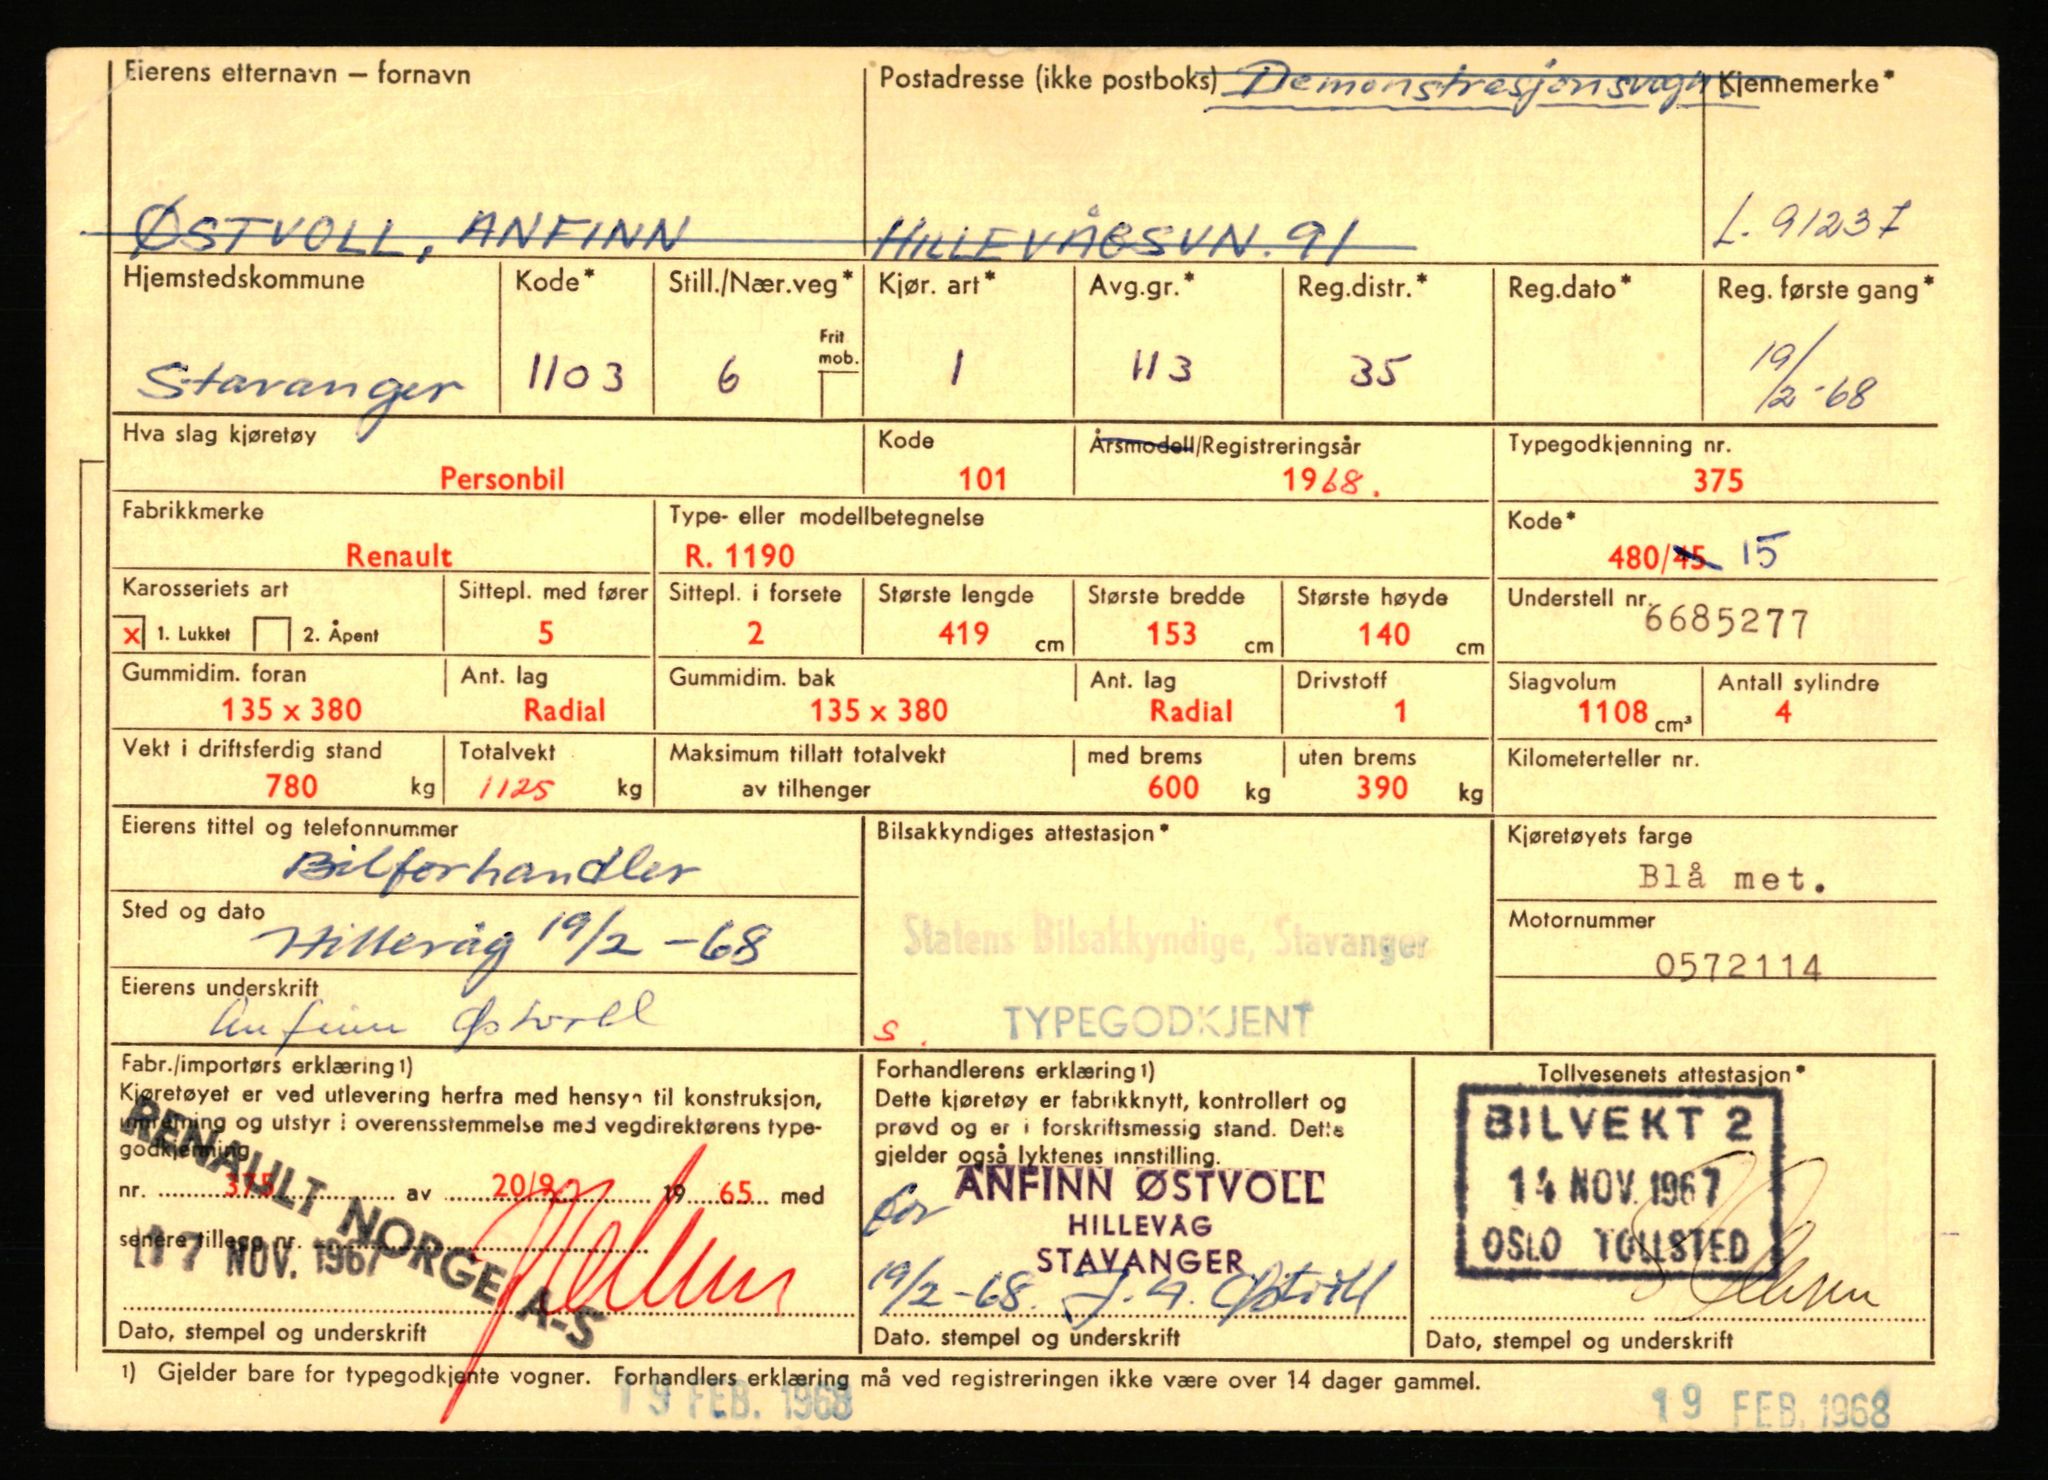 Eierens etternavn – fornavn
Postadresse (ikke postboks) Demonstrasjonsvogn
Kjennemerke*
ØSTVOLL, ANFINN
HILLEVÅGSVN. 91
L. 91237
Hjemstedskommune
Kode*
Still./Nær.veg*
Kjør. art*
Avg.gr.*
Reg.distr.*
Reg.dato*
Reg. første gang*
Frit
mob.
Stavanger
1103
6
1
113
35
19/2-68
Hva slag kjøretøy
Kode
Årsmodell/Registreringsår
Typegodkjenning nr.
Personbil
101
1968.
375
Fabrikkmerke
Type- eller modellbetegnelse
Kode*
Renault
R. 1190
480/45 15
Karosseriets art
Sittepl. med fører
Sittepl. i forsete
Største lengde
Største bredde
Største høyde
Understell nr.
6685277
x 1. Lukket 2. Åpent
5
2
419 cm
153 cm
140 cm
Gummidim. foran
Ant. lag
Gummidim. bak
Ant. lag
Drivstoff
Slagvolum
Antall sylindre
135 x 380
Radial
135 x 380
Radial
1
1108 cm³
4
Vekt i driftsferdig stand
Totalvekt
Maksimum tillatt totalvekt
med brems
uten brems
Kilometerteller nr.
780 kg
1125 kg
av tilhenger
600 kg
390 kg
Eierens tittel og telefonnummer
Bilsakkyndiges attestasjon*
Kjøretøyets farge
Bilforhandler
Blå met.
Sted og dato
Hillevåg 19/2-68
Statens Bilsakkyndige, Stavanger
Motornummer
0572114
Eierens underskrift
Anfinn Østvoll
S.
TYPEGODKJENT
Fabr./importørs erklæring 1)
Kjøretøyet er ved utlevering herfra med hensyn til konstruksjon,
umretning og utstyr i overensstemmelse med vegdirektørens type-
godkjenning
nr. 375 av 20/9 1965 med
senere tillegg nr.
RENAULT NORGE A-S
17 NOV. 1967
Dato, stempel og underskrift
Forhandlerens erklæring 1)
Dette kjøretøy er fabrikknytt, kontrollert og
prøvd og er i forskriftsmessig stand. Dette
gjelder også lyktenes innstilling.
for ANFINN ØSTVOLL
HILLEVÅG
STAVANGER
19/2-68. J. A. Østvoll
Dato. stempel og underskrift
Tollvesenets attestasjon*
BILVEKT 2
14 NOV. 1967
OSLO TOLLSTED
Dato, stempel og underskrift
1) Gjelder bare for typegodkjente vogner. Forhandlers erklæring må ved registreringen ikke være over 14 dager gammel.
19 FEB. 1968
19 FEB. 1968